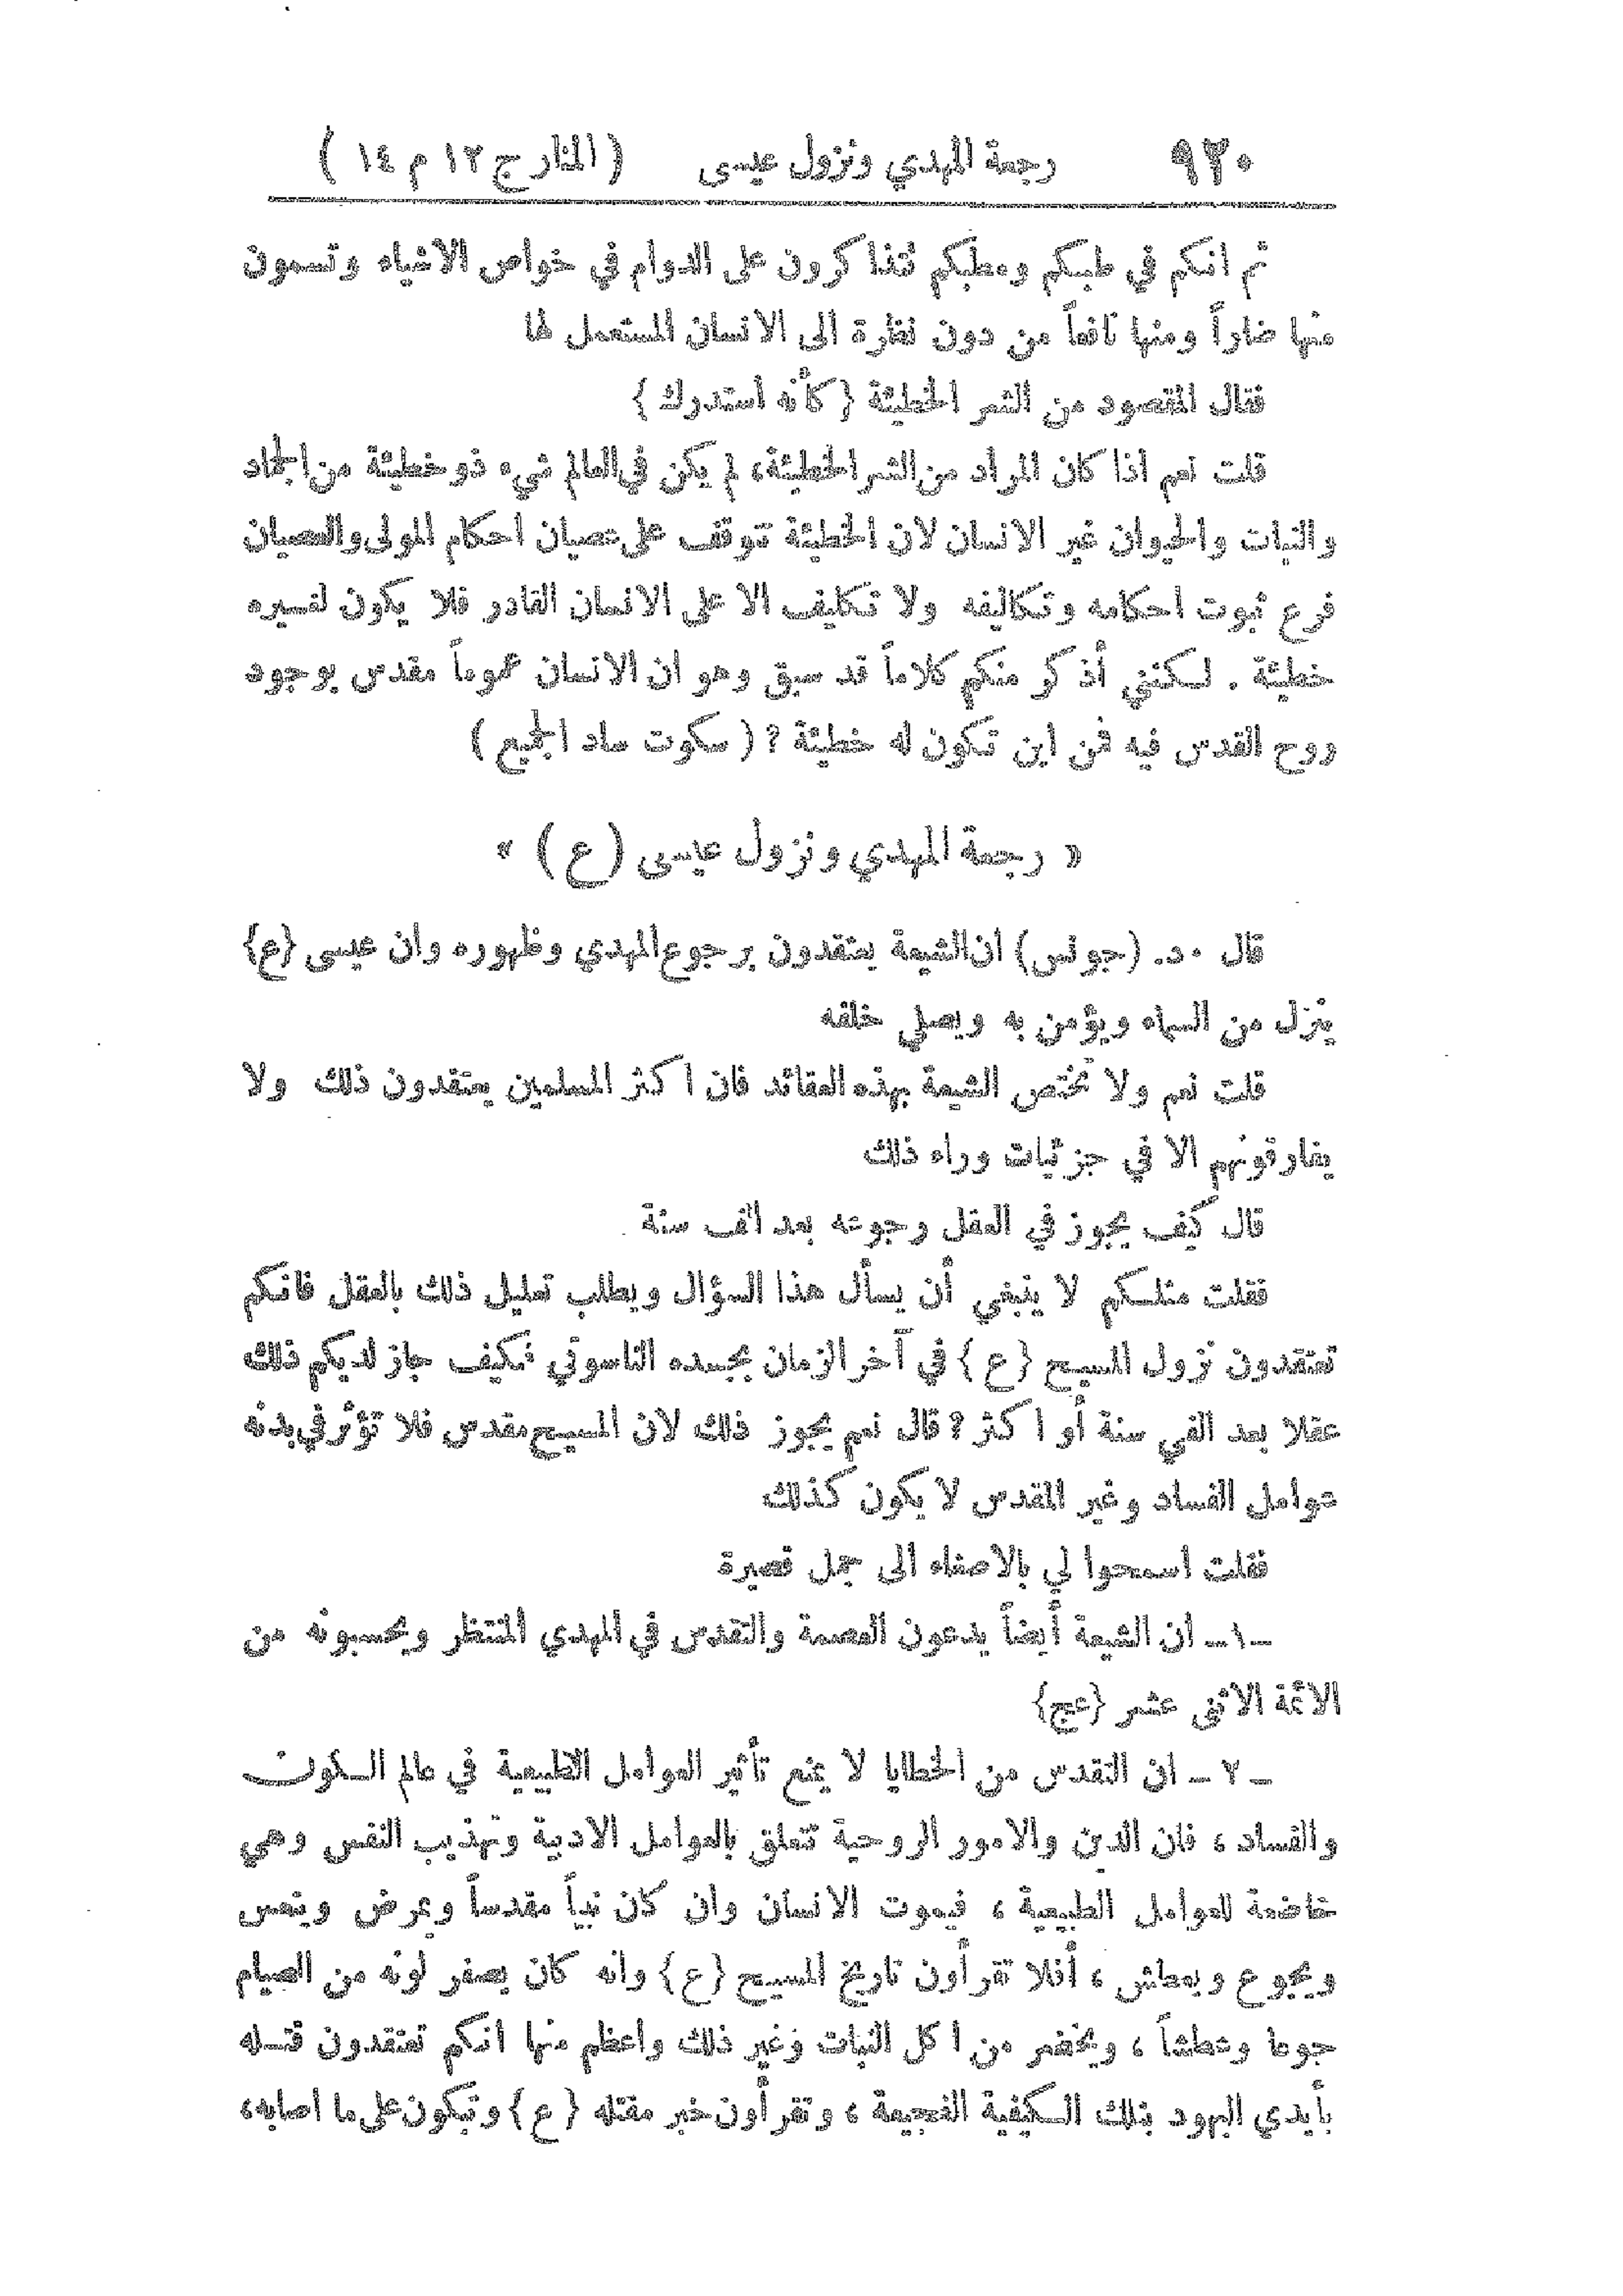 ٩٢٠ رجعة المهدي ونزول عيسى ( المنار ج ١٢ م ١٤ )
ثم انكم في طبكم ومطبكم تتذاكرون على الدوام في خواص الاشياء وتسمون
منها ضاراً ومنها نافعاً من دون نظرة الى الانسان المستعمل لها
فقال المقصود من الشر الخطيئة {كأنه استدرك}
قلت نعم اذا كان المراد من الشر الخطيئة، لم يكن في العالم شيء ذو خطيئة من الجماد
والنبات والحيوان غير الانسان لان الخطيئة توقف على عصيان احكام المولى والعصيان
فرع ثبوت احكامه وتكاليفه ولا تكليف الا على الانسان القادر فلا يكون لغيره
خطيئة . لكنني أذكر منكم كلاماً قد سبق وهو ان الانسان عموماً مقدس بوجود
روح القدس فيه فمن اين تكون له خطيئة ? ( سكوت ساد الجميع )
« رجعة المهدي ونزول عيسى ( ع ) »
قال ٠د. (جونس) ان الشيعة يعتقدون برجوع المهدي وظهوره وان عيسى {ع}
ينزل من السماء ويؤمن به ويصلي خلفه
قلت نعم ولا تختص الشيعة بهذه العقائد فان اكثر المسلمين يعتقدون ذلك ولا
يفارقونهم الا في جزئيات وراء ذلك
قال كيف يجوز في العقل رجوعه بعد الف سنة
فقلت مثلكم لا ينبغي أن يسأل هذا السؤال ويطلب تعليل ذلك بالعقل فانكم
تعتقدون نزول المسيح {ع} في آخر الزمان بجسده الناسوتي فكيف جاز لديكم ذلك
عقلا بعد الفي سنة أو اكثر ? قال نعم يجوز ذلك لان المسيح مقدس فلا تؤثر في بدنه
عوامل الفساد وغير المقدس لا يكون كذلك
فقلت اسمحوا لي بالاصغاء الى جمل قصيرة
ــ١ــ ان الشيعة أيضاً يدعون العصمة والتقدس في المهدي المنتظر ويحسبونه من
الائمة الاثنى عشر {عج}
ــ ٢ ــ ان التقدس من الخطايا لا يمنع تأثير العوامل الطبيعية في عالم الكون
والفساد ، فان الدين والامور الروحية تتعلق بالعوامل الادبية وتهذيب النفس وهي
خاضعة للعوامل الطبيعية ، فيموت الانسان وان كان نبياً مقدساً ويمرض وينعس
ويجوع ويعطش ، أفلا تقرأون تاريخ المسيح {ع} وانه كان يصفر لونه من الصيام
جوعا وعطشاً ، ويخضر من اكل النبات وغير ذلك واعظم منها انكم تعتقدون قتله
بأيدي اليهود بتلك الكيفية الفجيعة ، وتقرأون خبر مقتله {ع} وتبكون على ما اصابه،